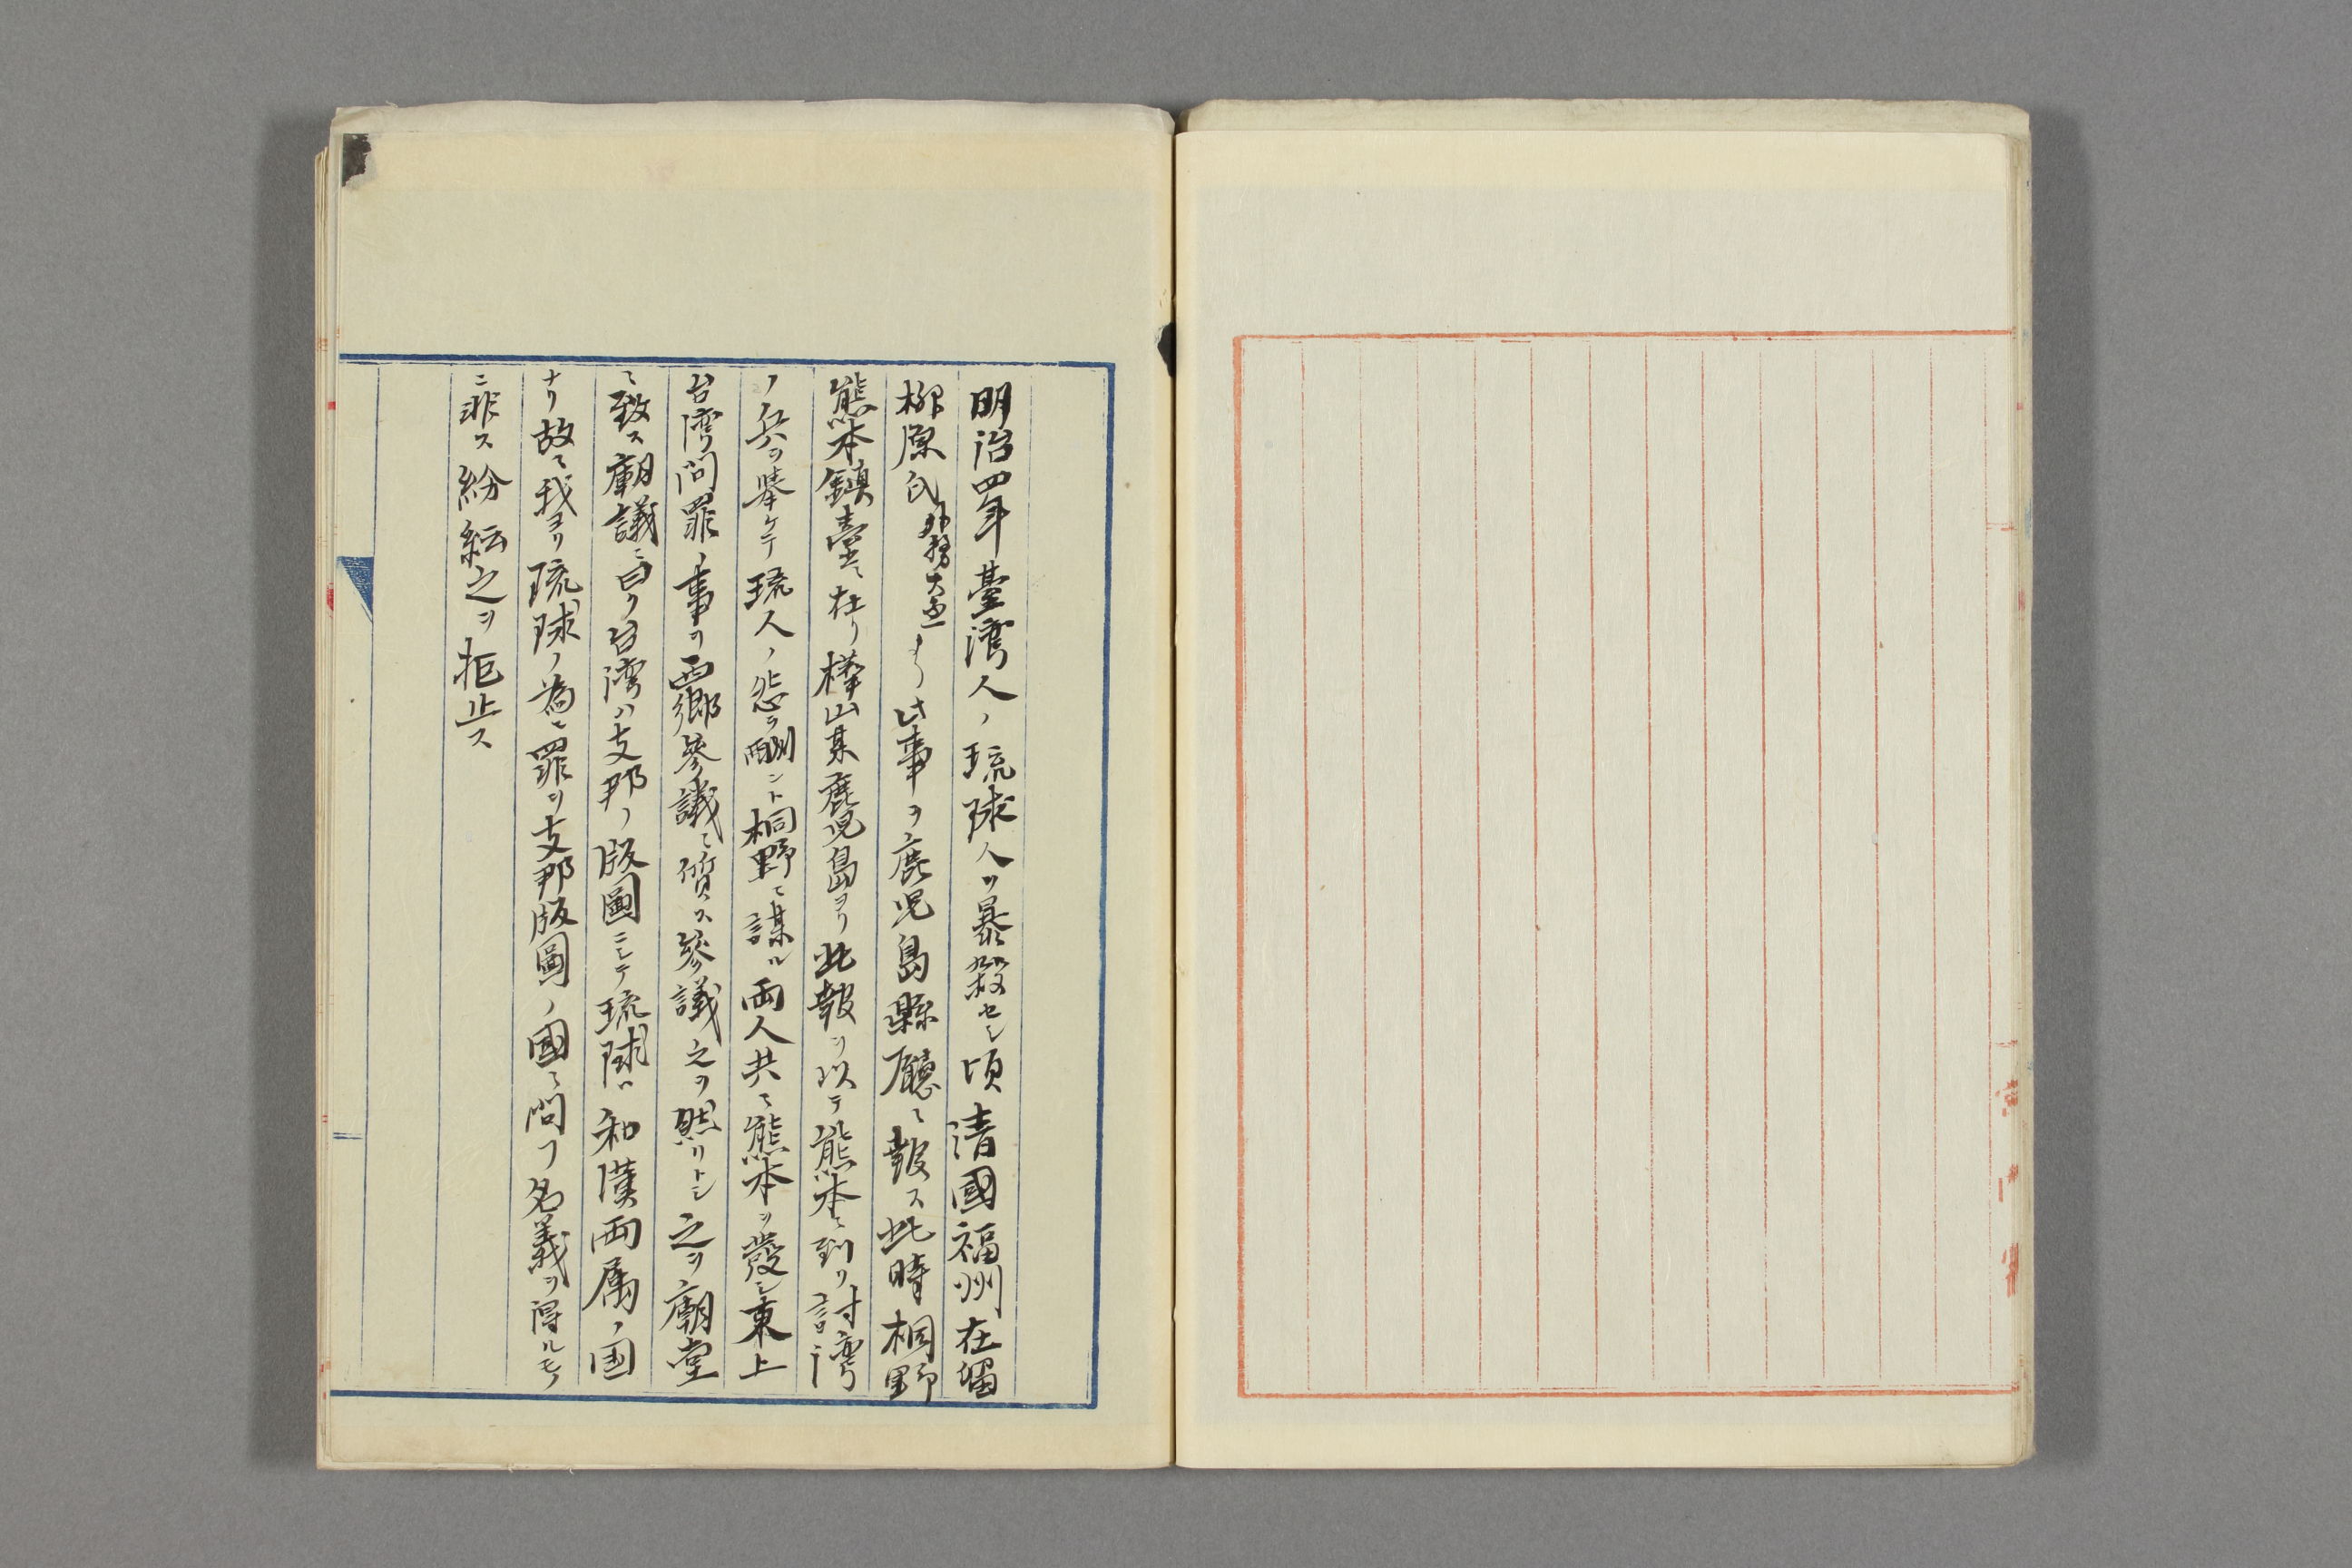 明治四年臺湾人ノ琉球人ヲ暴殺セシ頃清國福州在留
柳原氏外務大丞ヨリ此事ヲ鹿児島縣廳ニ報ス此時桐野
熊本鎮臺ニ在リ樺山某鹿児島ヨリ此報ヲ以テ熊本ニ到リ討湾
ノ兵ヲ挙ケテ琉人ノ怨ヲ酬ント桐野ニ謀ル両人共ニ熊本ヲ發シ東上
台湾問罪ノ事ヲ西郷參議ニ質ス參議之ヲ然リトシ之ヲ廟堂
ニ致ス廟議ニ曰ク台湾ハ支那ノ版圖ニシテ琉球ハ和漢両属ノ国
ナリ故ニ我ヨリ琉球ノ為ニ罪ヲ支那版圖ノ國ニ問フ名義ヲ得ルモノ
ニ非ス紛紜之ヲ拒止ス